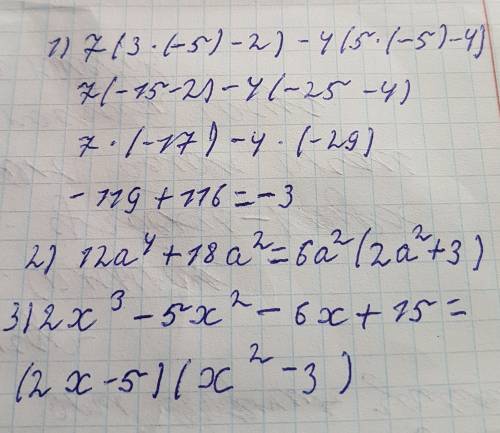 1) 7(3·(-5)-2)-4(5·(-5)-4)
7(-15-2)-4(-25-4)
7·(-17)-4·(-29)
-119+116=-3
2) 12a⁴+18a²=6a²(2a²+3)
3) 2x³-5x²-6x+15=
(2x-5)(x²-3)